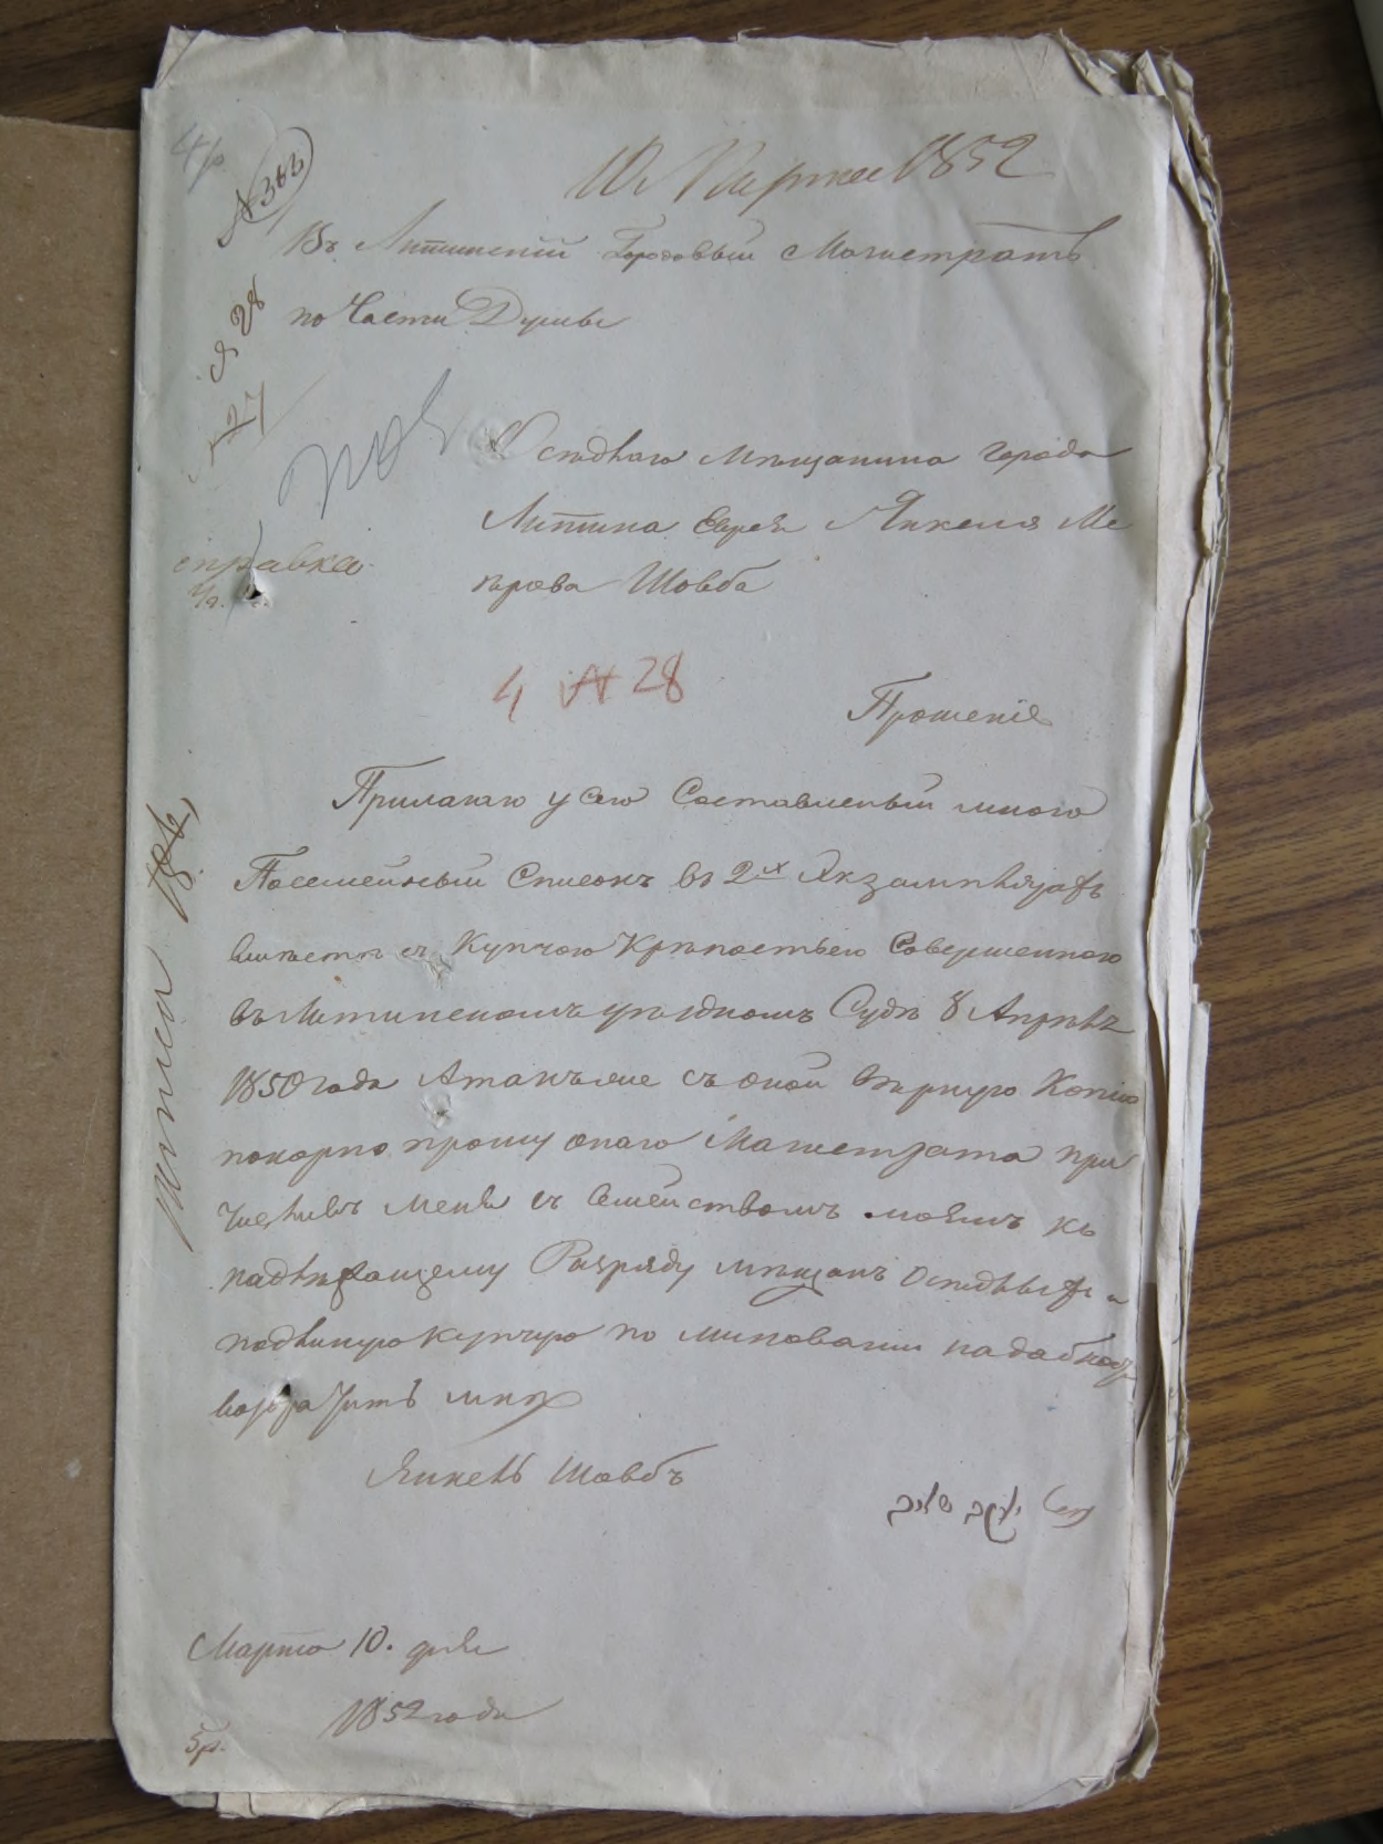 10 Марта 1852
Въ Литинскій Городовый Магистратъ
по Части Думы
№ 28
27
Осѣдлаго Мѣщанина города
Литина Еврея Янкеля Ме
ерова Шовба
справка
4 № 28
Прошеніе
Прилагаю у сего Составленый мною
Посемейный Списокъ въ 2х Экземплярахъ
вмѣстѣ съ Купчою Крѣпостью Совершенною
въ Литинскомъ уѣздномъ Судѣ 8 Апрѣля
1850 года А такъ же съ оной вѣрную Копію
покорно прошу онаго Магистрата при
числивъ меня съ Семействомъ моимъ къ
надлѣжащему Разряду мѣщанъ Осѣдлыхъ и
подлиную Купчую по минованіи надобност
возратить мнѣ
Янкель Шовбъ
יעקב שויב
Марта 10. дня
1852 года
5р.